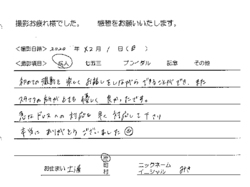 撮影お疲れ様でした。　感想をお願いいたします。
<撮影日時> 2020 年 12月 1日(火)
<撮影項目> 成人　七五三　ブライダル　記念　その他
初めての撮影も楽しくお話しをしながらできることができ、また
スタッフの方々がとても優しくて良かったです。
急なドレスへの対応も早く対応して下さり
本当にありがとうございました
お住まい 土浦
市
町
村
ニックネーム
イニシャル